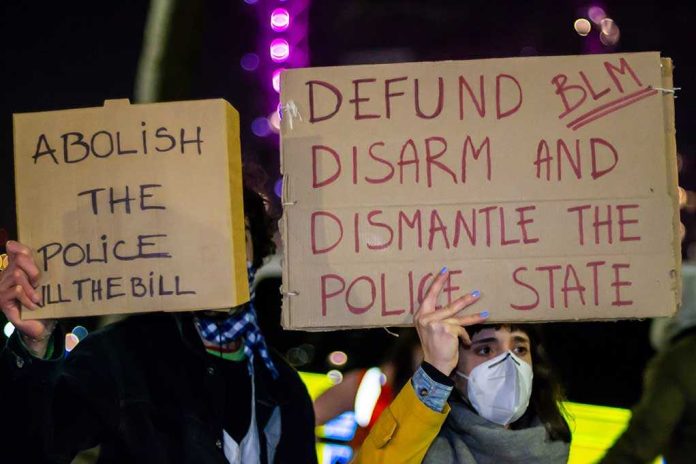 ABOLISH
THE
POLICE
KILL THE BILL
DEFUND BLM
DISARM AND
DISMANTLE THE
POLICE STATE